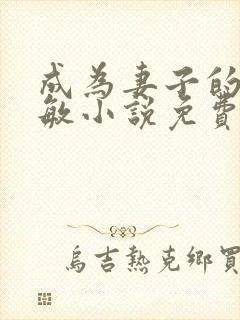 成為妻子的
敏小說免費
烏吉熱克鄉買